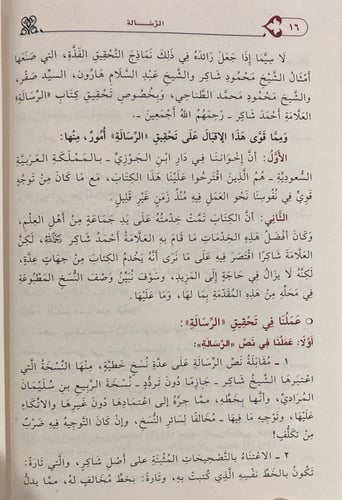 ١٦
الرِّسالة
لَا سِيَّمَا إِذَا جَعَلَ رَائِدَهُ فِي ذَلِكَ نَمَاذِجَ التَّحْقِيقِ الفَذَّةِ، التي صَنَعَهَا
أَمْثَالُ الشَّيْخِ مَحْمُود شَاكِر والشَّيخِ عَبْدِ السَّلَامِ هَارُون، السيِّد صَقْر،
والشَّيخ مَحْمُود مُحَمَّد الطَّنَاحِي، وَبِخُصُوصِ تَحْقِيقِ كِتَابِ «الرِّسَالَةِ»
العَلَّامَةِ أَحْمَد شَاكِر - رَحِمَهُمُ اللهُ أَجْمَعِينَ -.
وَمِمَّا قَوَّى هَذَا الإِقْبَالَ عَلَى تَحْقِيقِ «الرِّسَالَةِ» أُمُورٌ، مِنْهَا:
الأوَّلُ: أَنَّ إِخْوَانَنَا فِي دَارِ ابْنِ الجَوْزِيِّ - بِالمَمْلَكَةِ العَرَبِيَّةِ
السُّعُودِيَّةِ - هُمُ الَّذِينَ اقْتَرَحُوا عَلَيْنَا هَذَا الكِتَابَ، مَعَ مَا كَانَ مِنْ تَوَجُّهٍ
قَوِيٍّ فِي نُفُوسِنَا نَحْوَ العَمَلِ فِيهِ مُنْذُ زَمَنٍ غَيْرِ قَلِيلٍ.
الثَّانِي: أَنَّ الكِتَابَ تَمَّتْ خِدْمَتُهُ عَلَى يَدِ جَمَاعَةٍ مِنْ أَهْلِ العِلْمِ،
وَكَانَ أَفْضَلَ هَذِهِ الخِدْمَاتِ مَا قَامَ بِهِ العَلَّامَةُ أَحْمَدُ شَاكِر رَحِمَهُ اللهُ، لَكِنَّ
العَلَّامَةَ شَاكِرًا اقْتَصَرَ فِيهِ عَلَى مَا نَرَى أَنَّهُ يَخْدُمُ الكِتَابَ مِنْ جِهَاتٍ عِدَّةٍ،
لَكِنَّهُ لَا يَزَالُ فِي حَاجَةٍ إِلَى المَزِيدِ، وَسَوْفَ نُبَيِّنُ وَصْفَ النُّسَخِ المَطْبُوعَةِ
فِي مَحَلِّهِ مِنْ هَذِهِ المُقَدِّمَةِ بِمَا لَهَا، وَمَا عَلَيْهَا.
عَمَلُنَا فِي تَحْقِيقِ «الرِّسَالَةِ»:
أوَّلًا: عَمَلُنَا فِي نَصِّ «الرِّسَالَةِ»:
١ - مُقَابَلَةُ نَصِّ الرِّسَالَةِ عَلَى عِدَّةِ نُسَخٍ خَطِّيَّةٍ، مِنْهَا النُّسْخَةُ الَّتِي
اعْتَبَرَهَا الشَّيخُ شَاكِر - جَازِمًا دُونَ تَرَدُّدٍ - نُسْخَةَ الرَّبِيعِ بنِ سُلَيْمَانَ
المُرَادِي، وَأَنَّهَا بِخَطِّهِ، مِمَّا جَرَّهُ إِلَى اعْتِمَادِهَا دُونَ غَيْرِهَا وَالاتِّكَاءِ
عَلَيْهَا، وَتَوْجِيهِ مَا فِيهَا - مُخَالِفًا لِسَائِرِ النُّسَخِ، وَإِنْ كَانَ التَّوْجِيهُ فِيهِ ضَرْبٌ
مِنْ تَكَلُّفٍ!
٢ - الاعْتِنَاءُ بِالتَّصْحِيحَاتِ المُثْبَتَةِ عَلَى أَصْلِ شَاكِر، وَالَّتِي تَارَةً:
تَكُونُ بِالخَطِّ نَفْسِهِ الَّذِي كُتِبَتْ بِهِ، وَتَارَةً: بِخَطٍّ مُخَالِفٍ لَهُ، مِمَّا يدلُّ